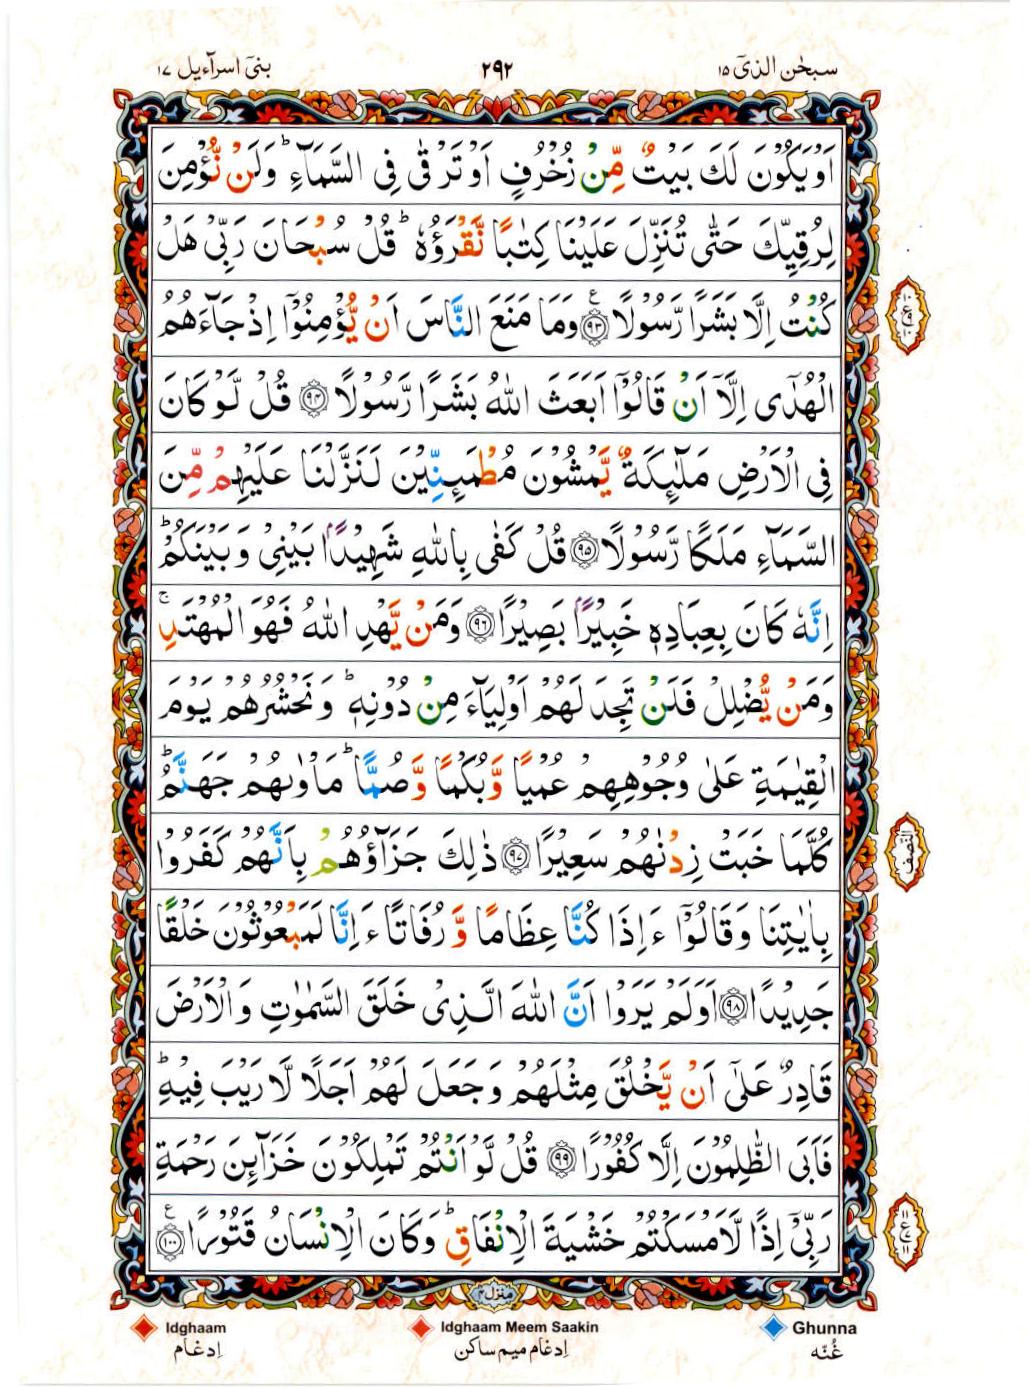 سبحٰن الذیٓ ١٥
٢٩٢
بنیٓ اسرآءیل ١٧
اَوْ يَكُوْنَ لَكَ بَيْتٌ مِّنْ زُخْرُفٍ اَوْ تَرْقٰى فِى السَّمَآءِ ؕ وَلَنْ نُّؤْمِنَ
لِرُقِيِّكَ حَتّٰى تُنَزِّلَ عَلَيْنَا كِتٰبًا نَّقْرَؤُهٗ ؕ قُلْ سُبْحَانَ رَبِّىْ هَلْ
كُنْتُ اِلَّا بَشَرًا رَّسُوْلًا ﴿٩٣﴾ وَمَا مَنَعَ النَّاسَ اَنْ يُّؤْمِنُوْۤا اِذْ جَآءَهُمُ
الْهُدٰٓى اِلَّاۤ اَنْ قَالُوْۤا اَبَعَثَ اللّٰهُ بَشَرًا رَّسُوْلًا ﴿٩٤﴾ قُلْ لَّوْ كَانَ
فِى الْاَرْضِ مَلٰٓئِكَةٌ يَّمْشُوْنَ مُطْمَئِنِّيْنَ لَنَزَّلْنَا عَلَيْهِمْ مِّنَ
السَّمَآءِ مَلَكًا رَّسُوْلًا ﴿٩٥﴾ قُلْ كَفٰى بِاللّٰهِ شَهِيْدًۢا بَيْنِىْ وَ بَيْنَكُمْ ؕ
اِنَّهٗ كَانَ بِعِبَادِهٖ خَبِيْرًۢا بَصِيْرًا ﴿٩٦﴾ وَمَنْ يَّهْدِ اللّٰهُ فَهُوَ الْمُهْتَدِ ۚ
وَمَنْ يُّضْلِلْ فَلَنْ تَجِدَ لَهُمْ اَوْلِيَآءَ مِنْ دُوْنِهٖ ؕ وَنَحْشُرُهُمْ يَوْمَ
الْقِيٰمَةِ عَلٰى وُجُوْهِهِمْ عُمْيًا وَّبُكْمًا وَّصُمًّا ؕ مَاْوٰىهُمْ جَهَنَّمُ ؕ
كُلَّمَا خَبَتْ زِدْنٰهُمْ سَعِيْرًا ﴿٩٧﴾ ذٰلِكَ جَزَآؤُهُمْ بِاَنَّهُمْ كَفَرُوْا
بِاٰيٰتِنَا وَقَالُوْۤا ءَاِذَا كُنَّا عِظَامًا وَّرُفَاتًا ءَاِنَّا لَمَبْعُوْثُوْنَ خَلْقًا
جَدِيْدًا ﴿٩٨﴾ اَوَلَمْ يَرَوْا اَنَّ اللّٰهَ الَّذِىْ خَلَقَ السَّمٰوٰتِ وَالْاَرْضَ
قَادِرٌ عَلٰٓى اَنْ يَّخْلُقَ مِثْلَهُمْ وَجَعَلَ لَهُمْ اَجَلًا لَّا رَيْبَ فِيْهِ ؕ
فَاَبَى الظّٰلِمُوْنَ اِلَّا كُفُوْرًا ﴿٩٩﴾ قُلْ لَّوْ اَنْتُمْ تَمْلِكُوْنَ خَزَآئِنَ رَحْمَةِ
رَبِّىْۤ اِذًا لَّاَمْسَكْتُمْ خَشْيَةَ الْاِنْفَاقِ ؕ وَكَانَ الْاِنْسَانُ قَتُوْرًا ﴿١٠٠﴾
النصف
منزل ٤
Idghaam
Idghaam Meem Saakin
Ghunna
اِدغام
اِدغام میم ساکن
غُنّه